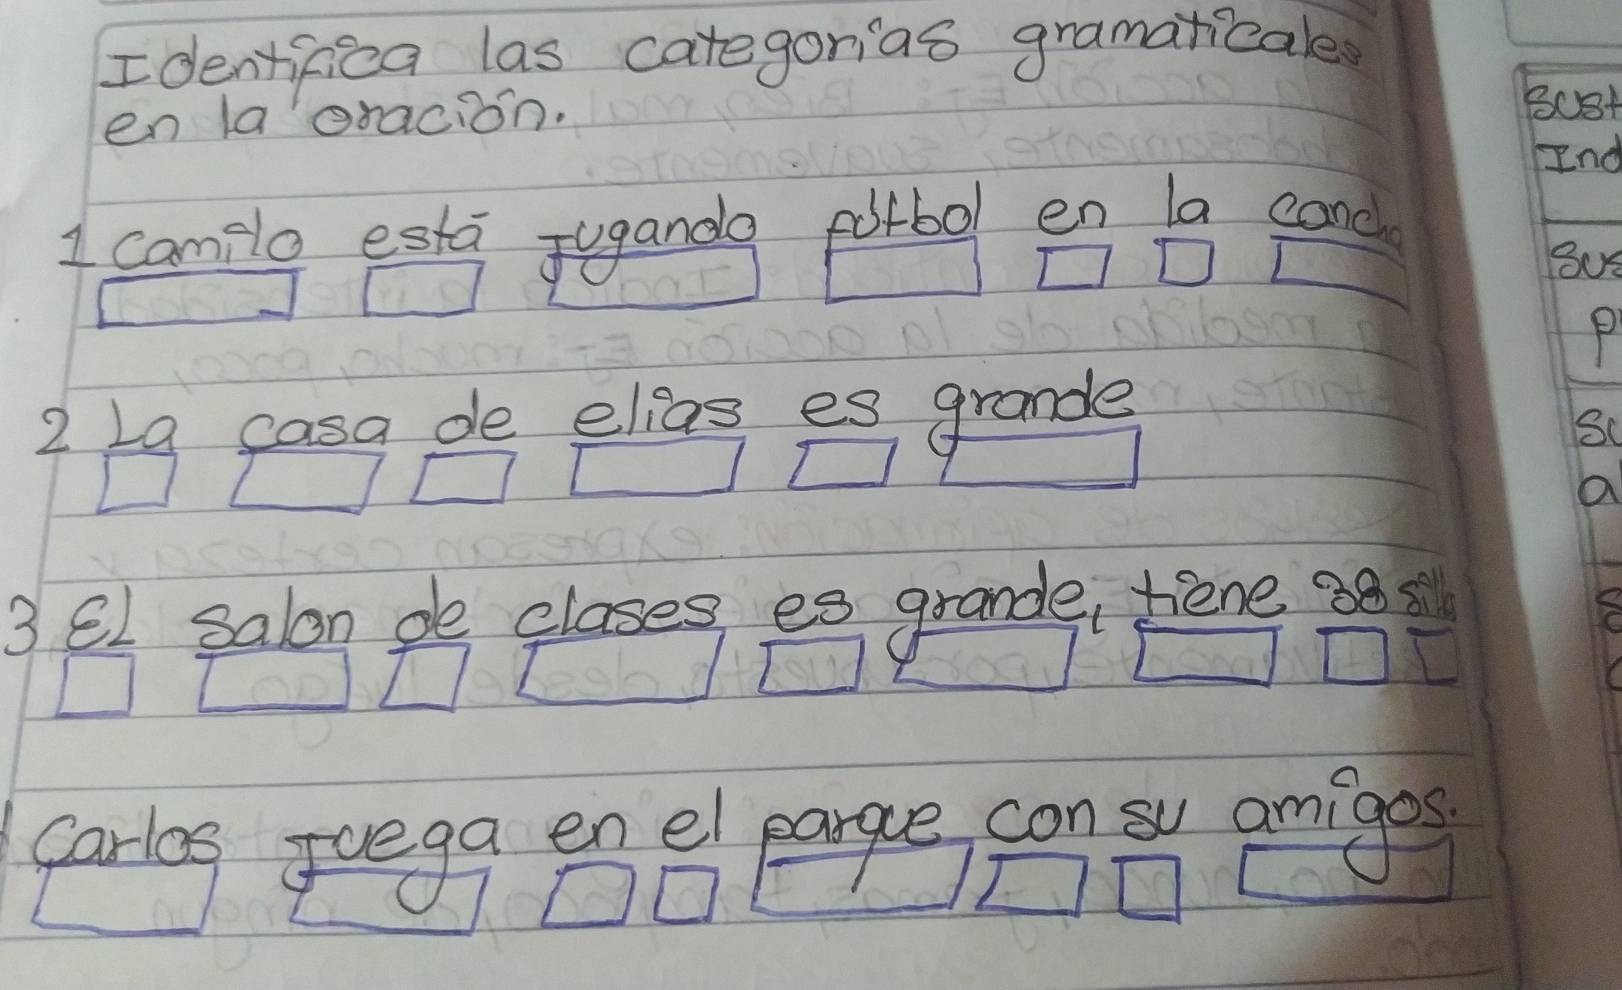 Identifica las categorías gramaticales
en la oración.
1 Camilo está Jugando fútbol en la canch
2 La casa de elias es grande
3 El salon de clases es grande, tiene 38 sill
Carlos Juega en el parque con su amigos.
Sust
Ind
Sus
p
Su
a